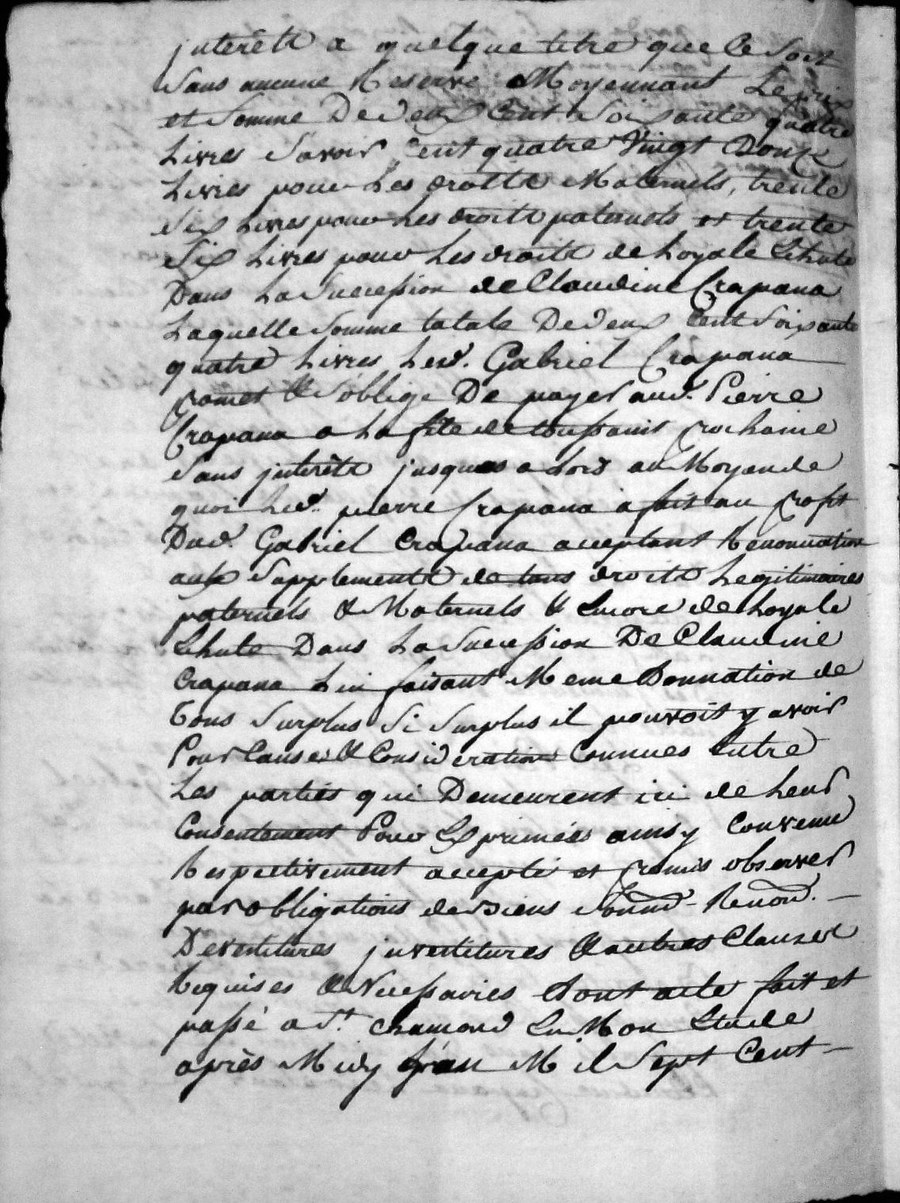 jnterêts a quelque titre que Ce Soit
Sans aucune Reserve. Moyennant Le prix
et Somme De deux Cent Soixante quatre
Livres Savoir Cent quatre Vingt Douze
Livres pour Les droits Maternels, trente
Six Livres pour Les droits paternels et trente
Six Livres pour Les droits de Loyale Echute
Dans La Succession de Claudine Crapana
Laquelle Somme totale De deux Cent Soixante
quatre Livres Led. Gabriel Crapana
promet & S'oblige De payer aud. Pierre
Crapana a La fête de toussaint prochaine
Sans jnterêts jusques a Lors au Moyen de
quoi Led. pierre Crapana a fait au profit
Dud. Gabriel Crapana acceptant Renonciation
aux Supplements de tous droits Legitimaires
paternels & Maternels & Encore de Loyale
Echute Dans La Succession De Claudine
Crapana Lui faisant Meme Donnation de
tous Surplus Si Surplus il pouvoit y avoir
Pour Causes & Considerations Connues Entre
Les parties qui Demeurent ici de Leur
Consentement Pour Exprimées ainsy Convenu
Respectivement accepté et promis observer
par obligations de Biens Renond.
Devestitures jnvestitures & autres Clauses
Requises & Necessaires Dont acte fait et
passé a St. chamond En Mon Etude
après Midy L'an Mil Sept Cent